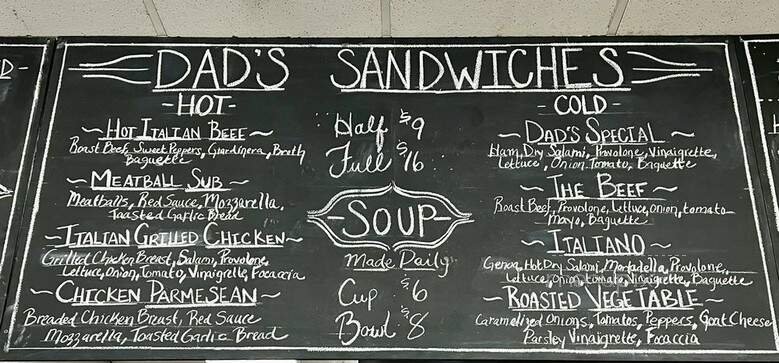 DAD'S SANDWICHES
-HOT-
~HOT ITALIAN BEEF~
Roast Beef, Sweet Peppers, Giardinera, Broth
Baguette
~MEATBALL SUB~
Meatballs, Red Sauce, Mozzarella,
Toasted Garlic Bread
~ITALIAN GRILLED CHICKEN~
Grilled Chicken Breast, Salami, Provolone,
Lettuce, Onion, Tomato, Vinaigrette, Focaccia
~CHICKEN PARMESEAN~
Breaded Chicken Breast, Red Sauce
Mozzarella, Toasted Garlic Bread
Half $9
Full $16
-SOUP-
Made Daily
Cup $6
Bowl $8
-COLD-
~DAD'S SPECIAL~
Ham, Dry Salami, Provolone, Vinaigrette,
Lettuce, Onion, Tomato, Baguette
~THE BEEF~
Roast Beef, Provolone, Lettuce, onion, tomato
Mayo, Baguette
~ITALIANO~
Genoa, Hot Dry Salami, Mortadella, Provolone,
Lettuce, onion, tomato, Vinaigrette, Baguette
~ROASTED VEGETABLE~
Caramelized Onions, Tomatos, Peppers, Goat Cheese
Parsley Vinaigrette, Focaccia